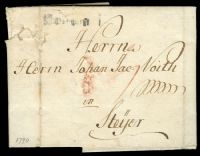 Herrn
Herrn Johan Jac Voith
in
Steÿer
1790